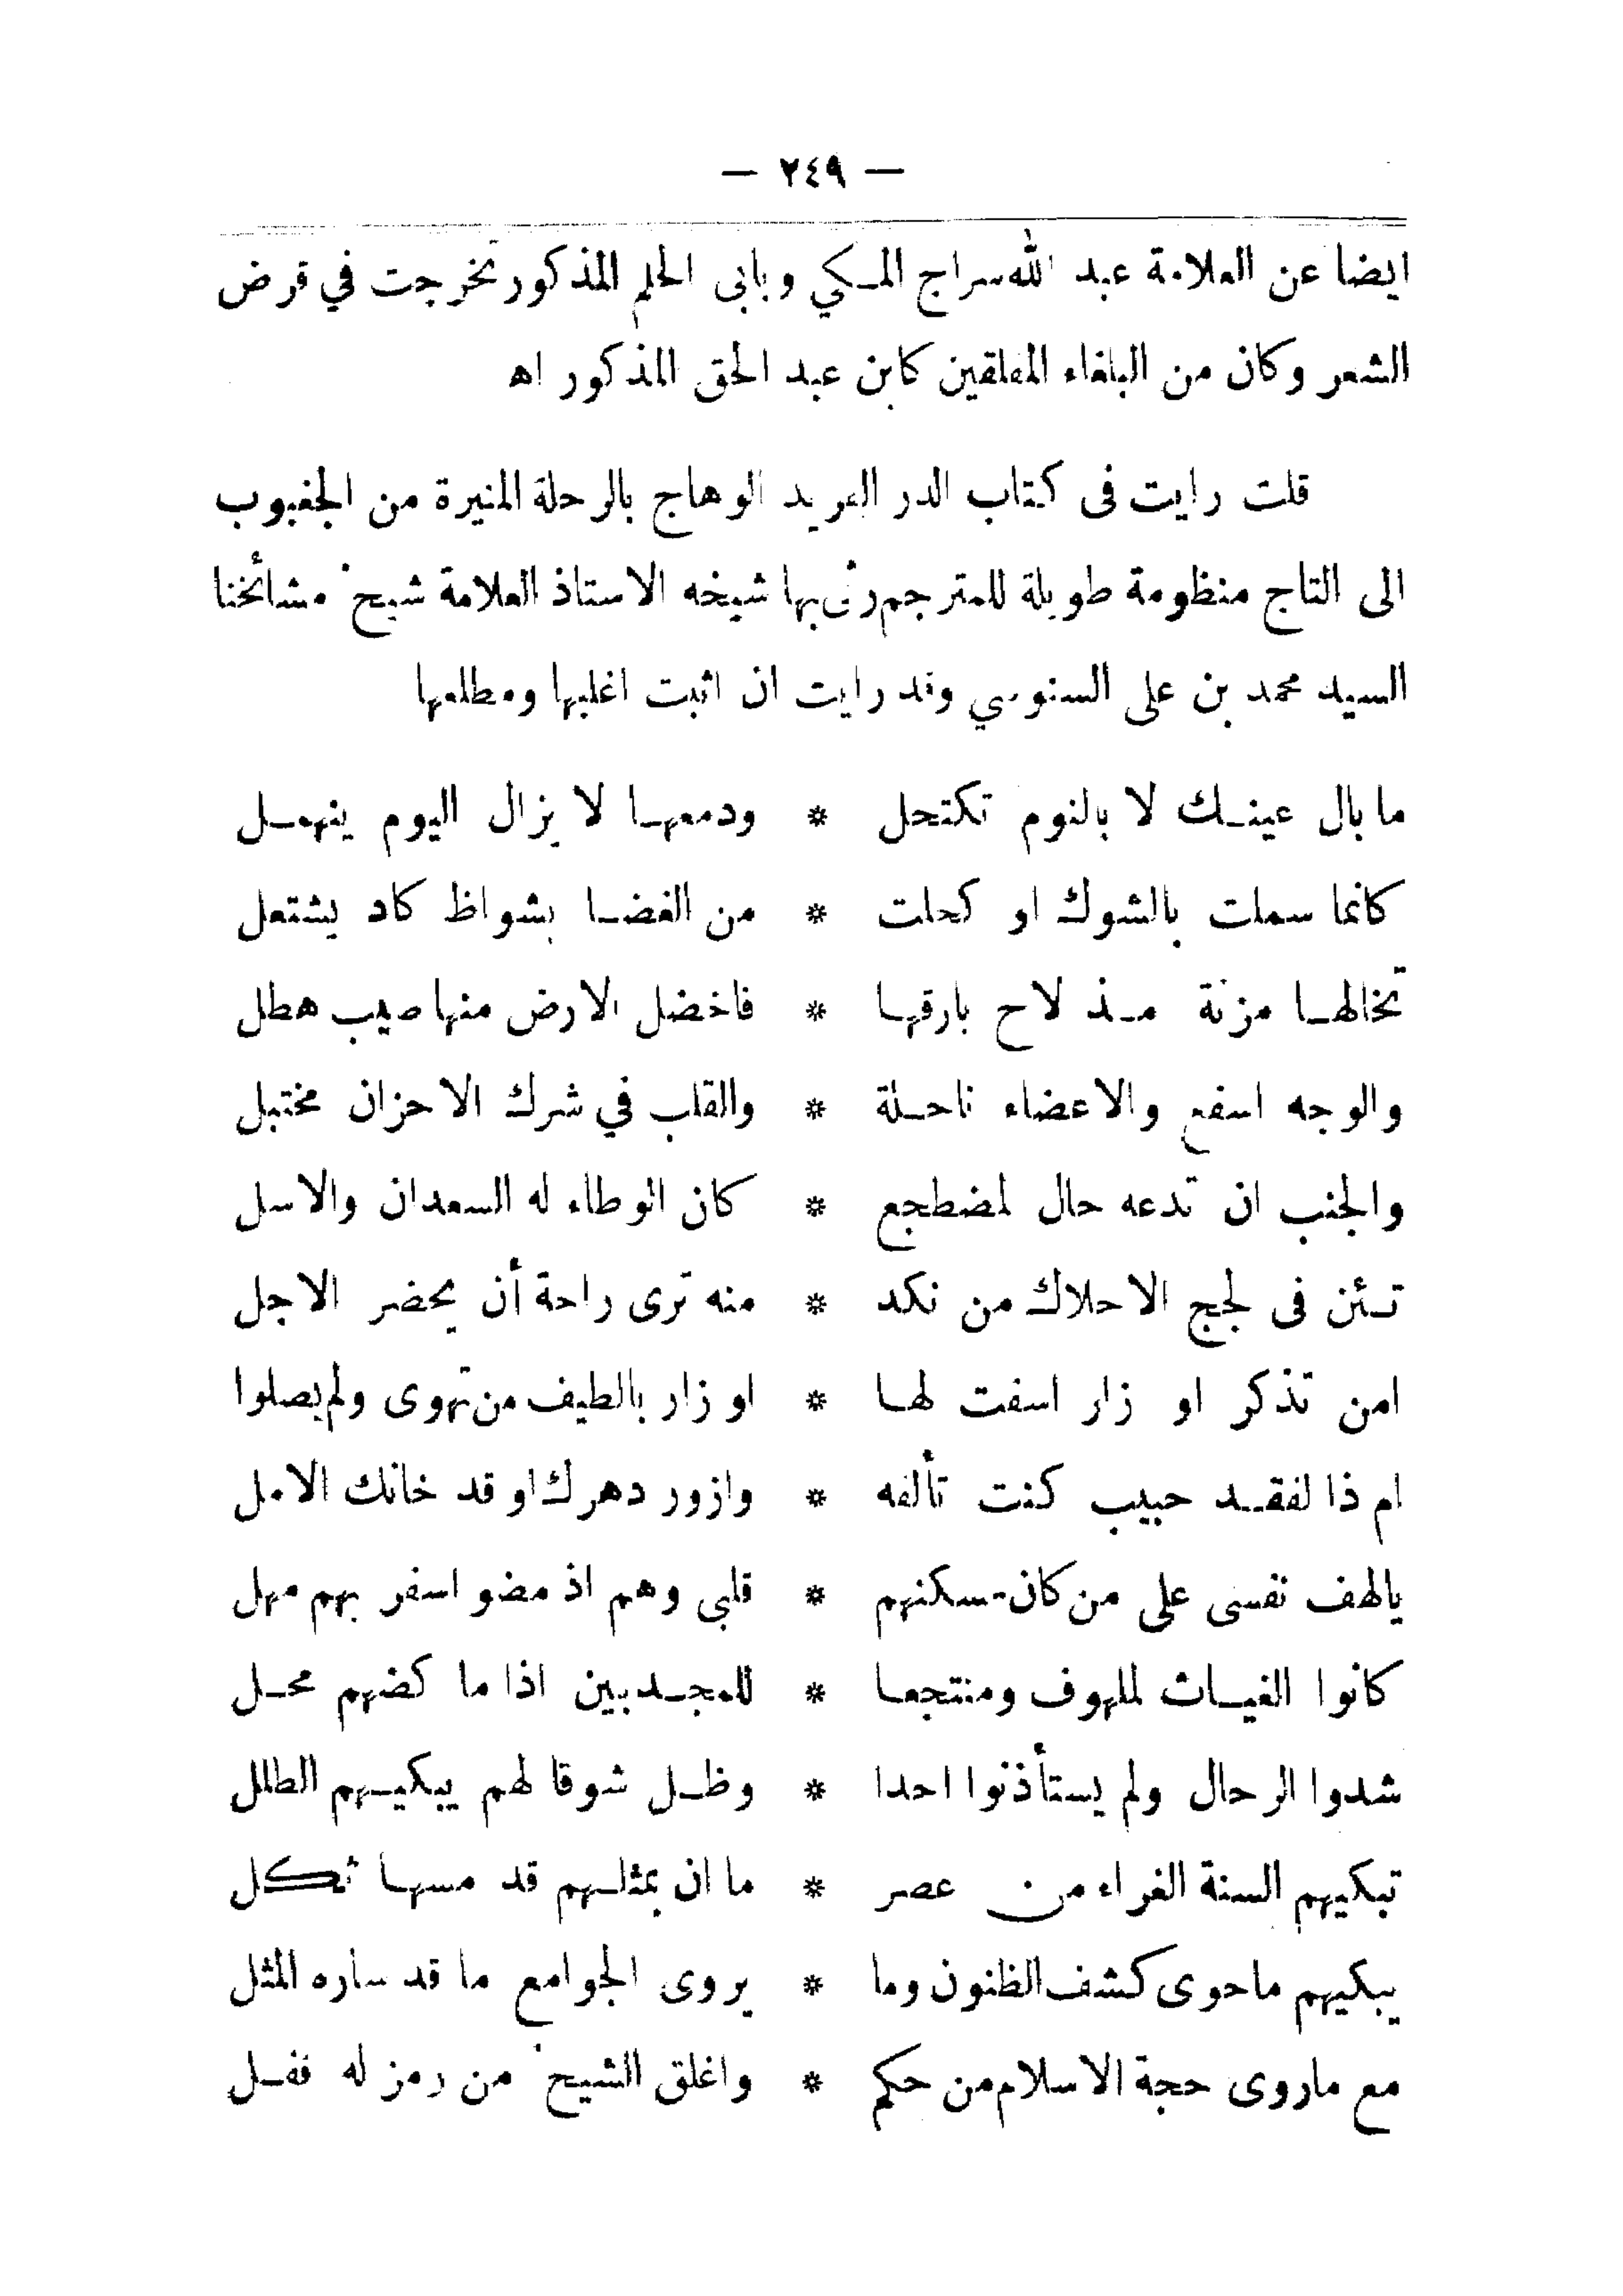 — ٢٤٩ —
ايضا عن العلامة عبد الله سراج المكي وبابى الحلم المذكور تخرجت في قرض
الشعر وكان من البلغاء المفلقين كابن عبد الحق المذكور اه
قلت رايت فى كتاب الدر الفريد الوهاج بالرحلة المنيرة من الجغبوب
الى التاج منظومة طويلة للمترجم رثى بها شيخه الاستاذ العلامة شيخ مشائخنا
السيد محمد بن على السنوسي وقد رايت ان اثبت اغلبها ومطلعها
ما بال عينك لا بالنوم تكتحل * ودمعها لا يزال اليوم ينهمل
كانما سملت بالشوك او كحلت * من الغضا بشواظ كاد يشتعل
تخالها مزنة مذ لاح بارقها * فاخضل الارض منها صيب هطل
والوجه اسفع والاعضاء ناحلة * والقلب في شرك الاحزان مختبل
والجنب ان تدعه حال لمضطجع * كان الوطاء له السعدان والاسل
تئن فى لجج الاحلاك من نكد * منه ترى راحة أن يحضر الاجل
امن تذكر او زار اسفت لها * او زار بالطيف من تهوى ولم يصلوا
ام ذا لفقد حبيب كنت تألفه * وازور دهرك او قد خانك الامل
يالهف نفسى على من كان مسكنهم * قلبى وهم اذ مضو اسفر بهم مهل
كانوا الغياث لملهوف ومنتجعا * للمجدبين اذا ما كضهم محل
شدوا الرحال ولم يستأذنوا احدا * وظل شوقا لهم يبكيهم الطلل
تبكيهم السنة الغراء من عصر * ما ان بمثلهم قد مسها ثكل
يبكيهم ماحوى كشف الظنون وما * يروى الجوامع ما قد ساره المثل
مع ماروى حجة الاسلام من حكم * واغلق الشيخ من رمز له قفل